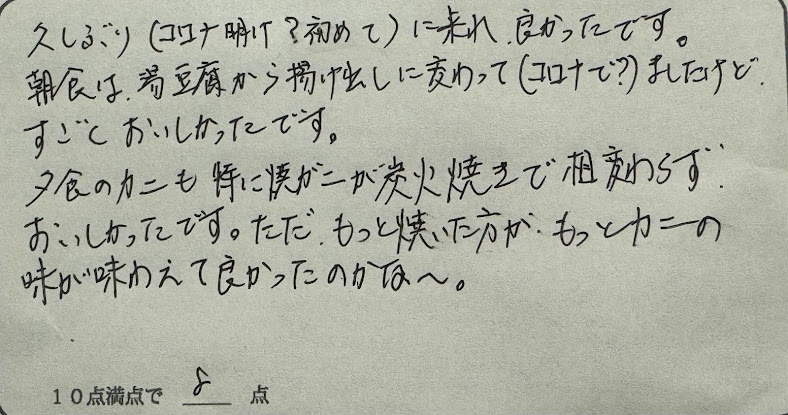 久しぶり(コロナ明け?初めて)に来れ、良かったです。
朝食は、湯豆腐から揚げ出しに変わって(コロナで?)ましたけど、
すごくおいしかったです。
夕食のカニも特に焼ガニが炭火焼きで相変わらず
おいしかったです。ただ、もっと焼いた方が、もっとカニの
味が味わえて良かったのかな〜。
10点満点で 8 点